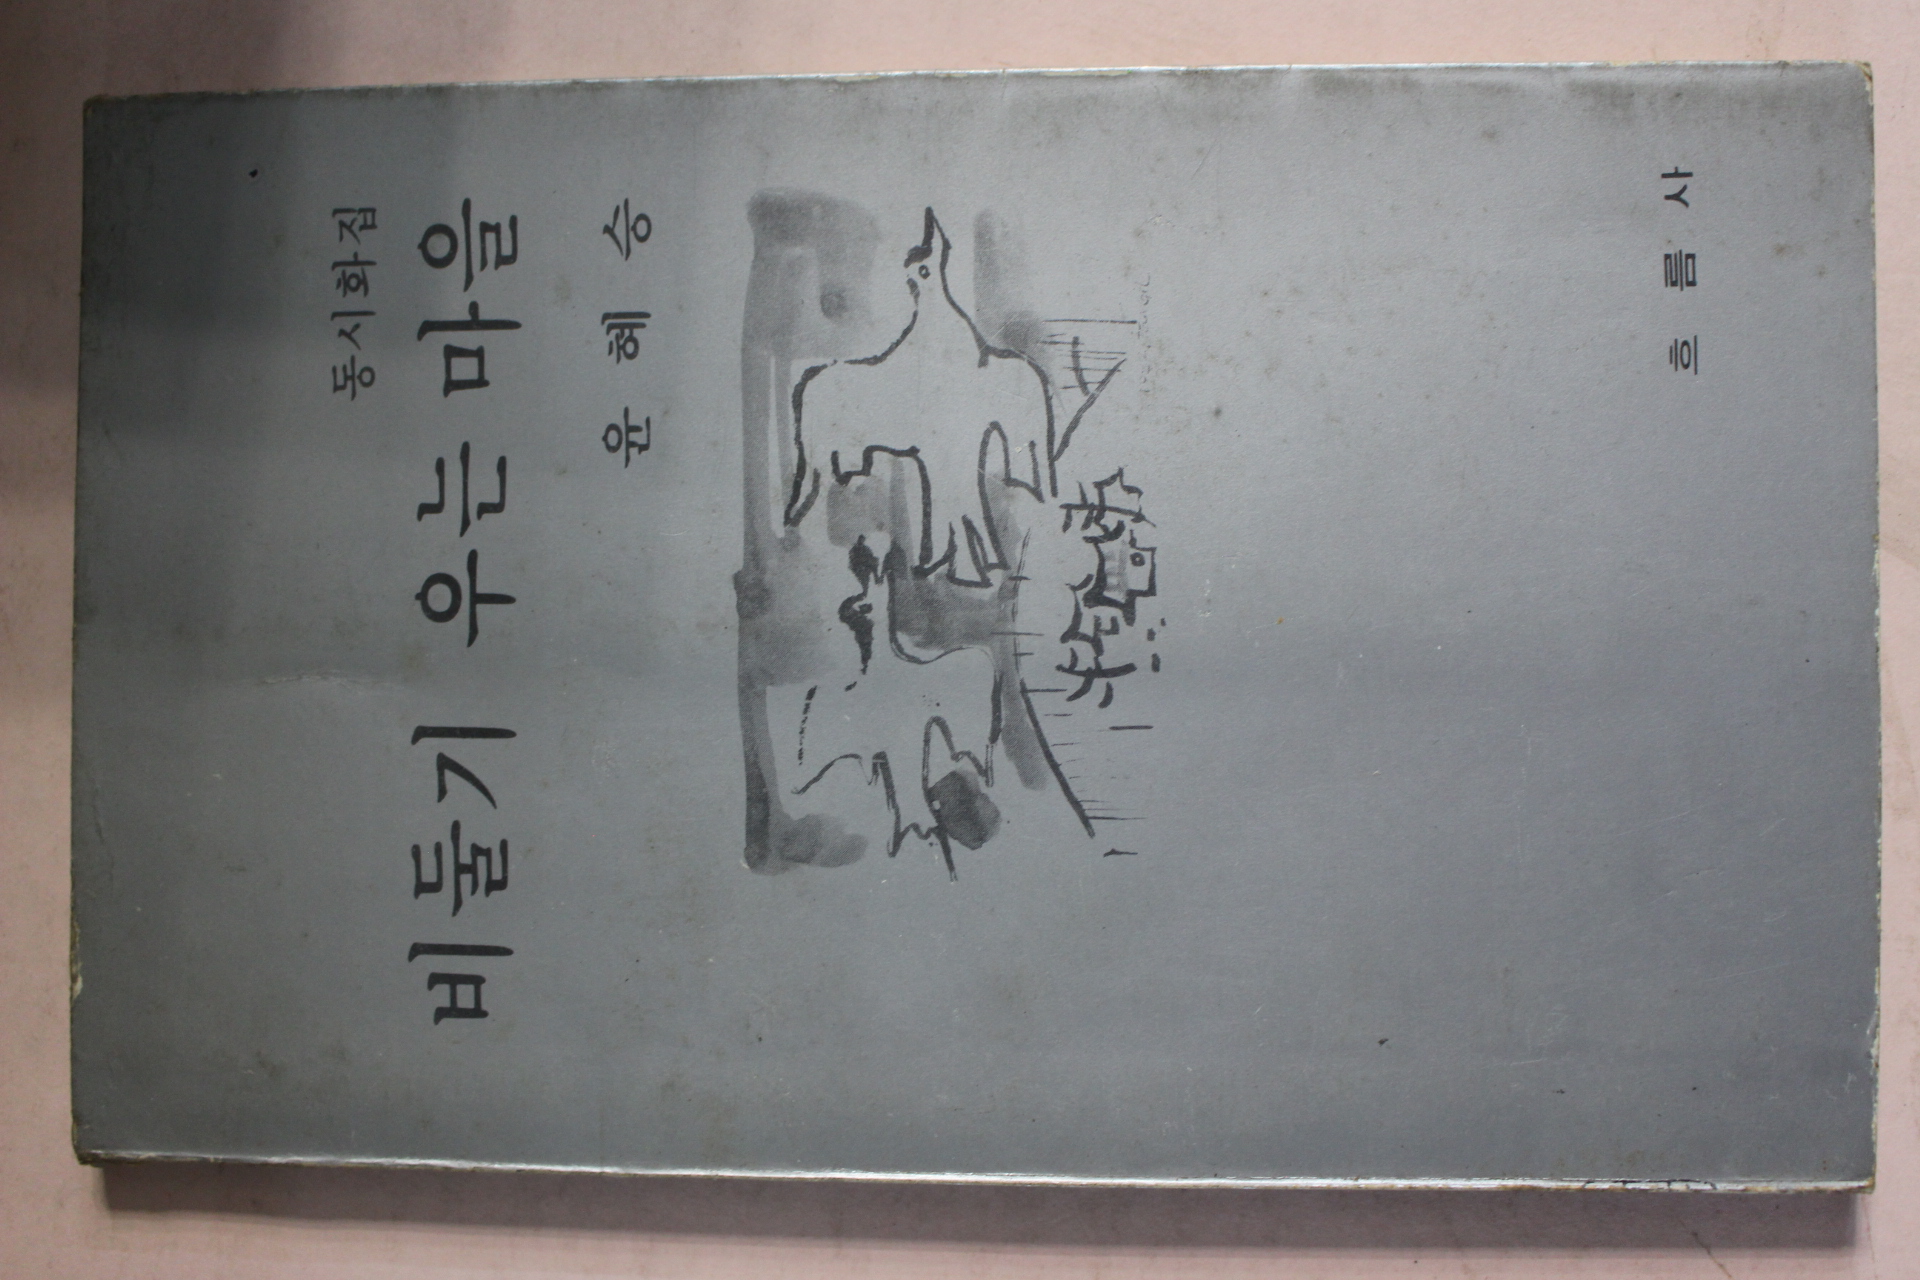 동시화집
비둘기 우는 마을
윤혜승
흐름사